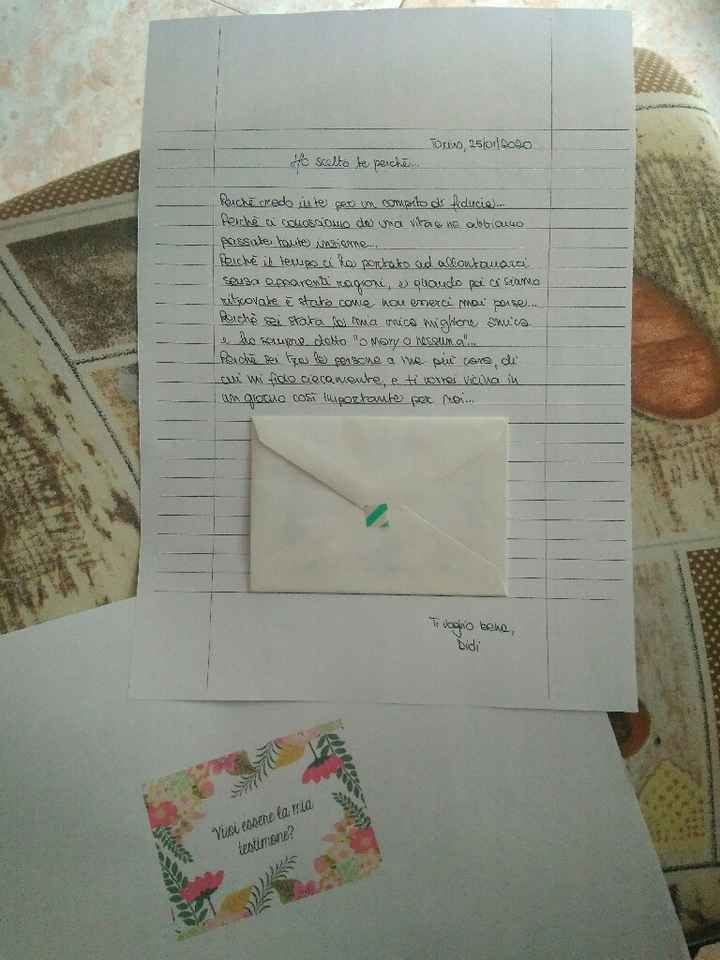 Torino, 25/01/2020
Ho scelto te perchè...
Perchè credo in te per un compito di fiducia...
Perchè ci conosciamo da una vita e ne abbiamo
passate tante insieme...
Perchè il tempo ci ha portato ad allontanarci
senza apparenti ragioni, e quando poi ci siamo
ritrovate è stato come non esserci mai perse...
Perchè sei stata la mia mica migliore amica
e ho sempre detto "o Mary o nessuna"...
Perchè sei tra le persone a me più care, di
cui mi fido ciecamente, e ti vorrei vicina in
un giorno così importante per noi...
Ti voglio bene,
Didi
Vuoi essere la mia
testimone?